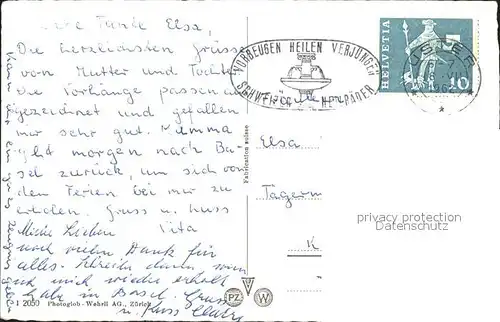 Liebe Tante Elsa,
Die herzlichsten Grüsse
von Mutter und Tochter.
Die Vorhänge passen aus-
gezeichnet und gefallen
mir sehr gut. Mamma
geht morgen nach Ba-
sel zurück, um sich von
den Ferien bei mir zu
erholen. Gruss u. Kuss
Vita
Meine Lieben
noch vielen Dank für
alles. Schreibe dann wenn
ich mich wieder erholt
habe in Basel. Gruss
u. Kuss Clara
I 2050 Photoglob-Wehrli AG., Zürich
Fabrication suisse
VORBEUGEN HEILEN VERJÜNGEN
SCHWEIZER HEILBÄDER
HELVETIA
10
USTER
Elsa
Tägerm
K
privacy protection
Datenschutz
PZ
W